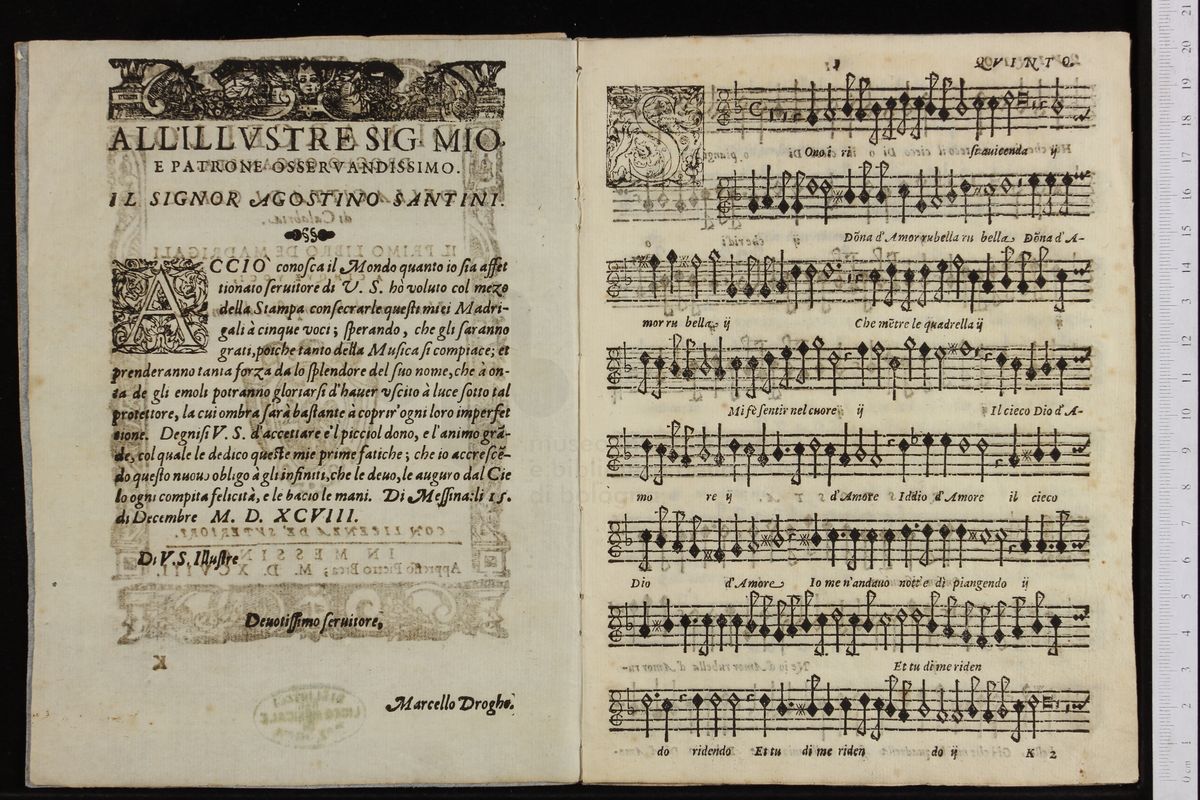 ALL'ILLVSTRE SIG. MIO,
E PATRONE OSSERVANDISSIMO.
IL SIGNOR AGOSTINO SANTINI.
ACCIO conosca il Mondo quanto io sia affet
tionato seruitore di V. S. hò voluto col mezo
della Stampa consecrarle questi miei Madri-
gali à cinque voci; sperando, che gli saranno
grati, poiche tanto della Musica si compiace; et
prenderanno tanta forza da lo splendore del suo nome, che à on-
ta de gli emoli potranno gloriarsi d'hauer vscito à luce sotto tal
protettore, la cui ombra sarà bastante à coprir' ogni loro imperfet
tione. Degnisi V. S. d'accettare e'l picciol dono, e l'animo grã-
de, col quale le dedico queste mie prime fatiche; che io accrescẽ-
do questo nuouo obligo à gli infiniti, che le deuo, le auguro dal Cie
lo ogni compita felicità, e le bacio le mani. Di Messina: li 15.
di Decembre M. D. XCVIII.
D. V. S. Illustre
Deuotissimo seruitore,
Marcello Droghe.
K
QVINTO.
S Ono i ri strauicenda ij
Dõna d' Amor rubella ru bella Dõna d' A-
mor ru bella ij Che mẽtre le quadrella ij
Mi fè sentir nel cuore ij Il cieco Dio d' A-
mo re ij d'Amore Iddio d'Amore il cieco
Dio d'Amore Io me n'andauo nott'e dì piangendo ij
Et tu di me riden
do ridendo Et tu di me riden do ij K 2